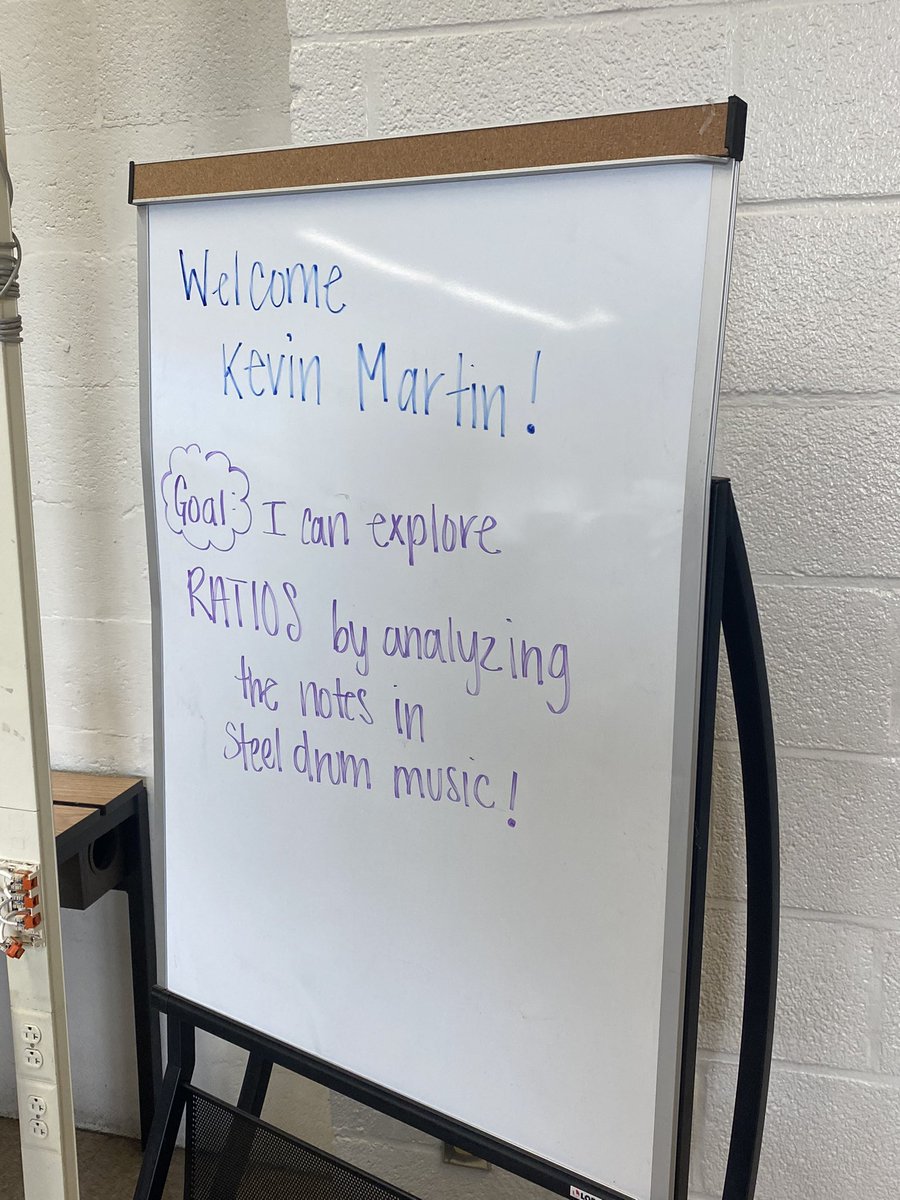 Welcome
Kevin Martin!
Goal: I can explore
RATIOS by analyzing
the notes in
Steel drum music!